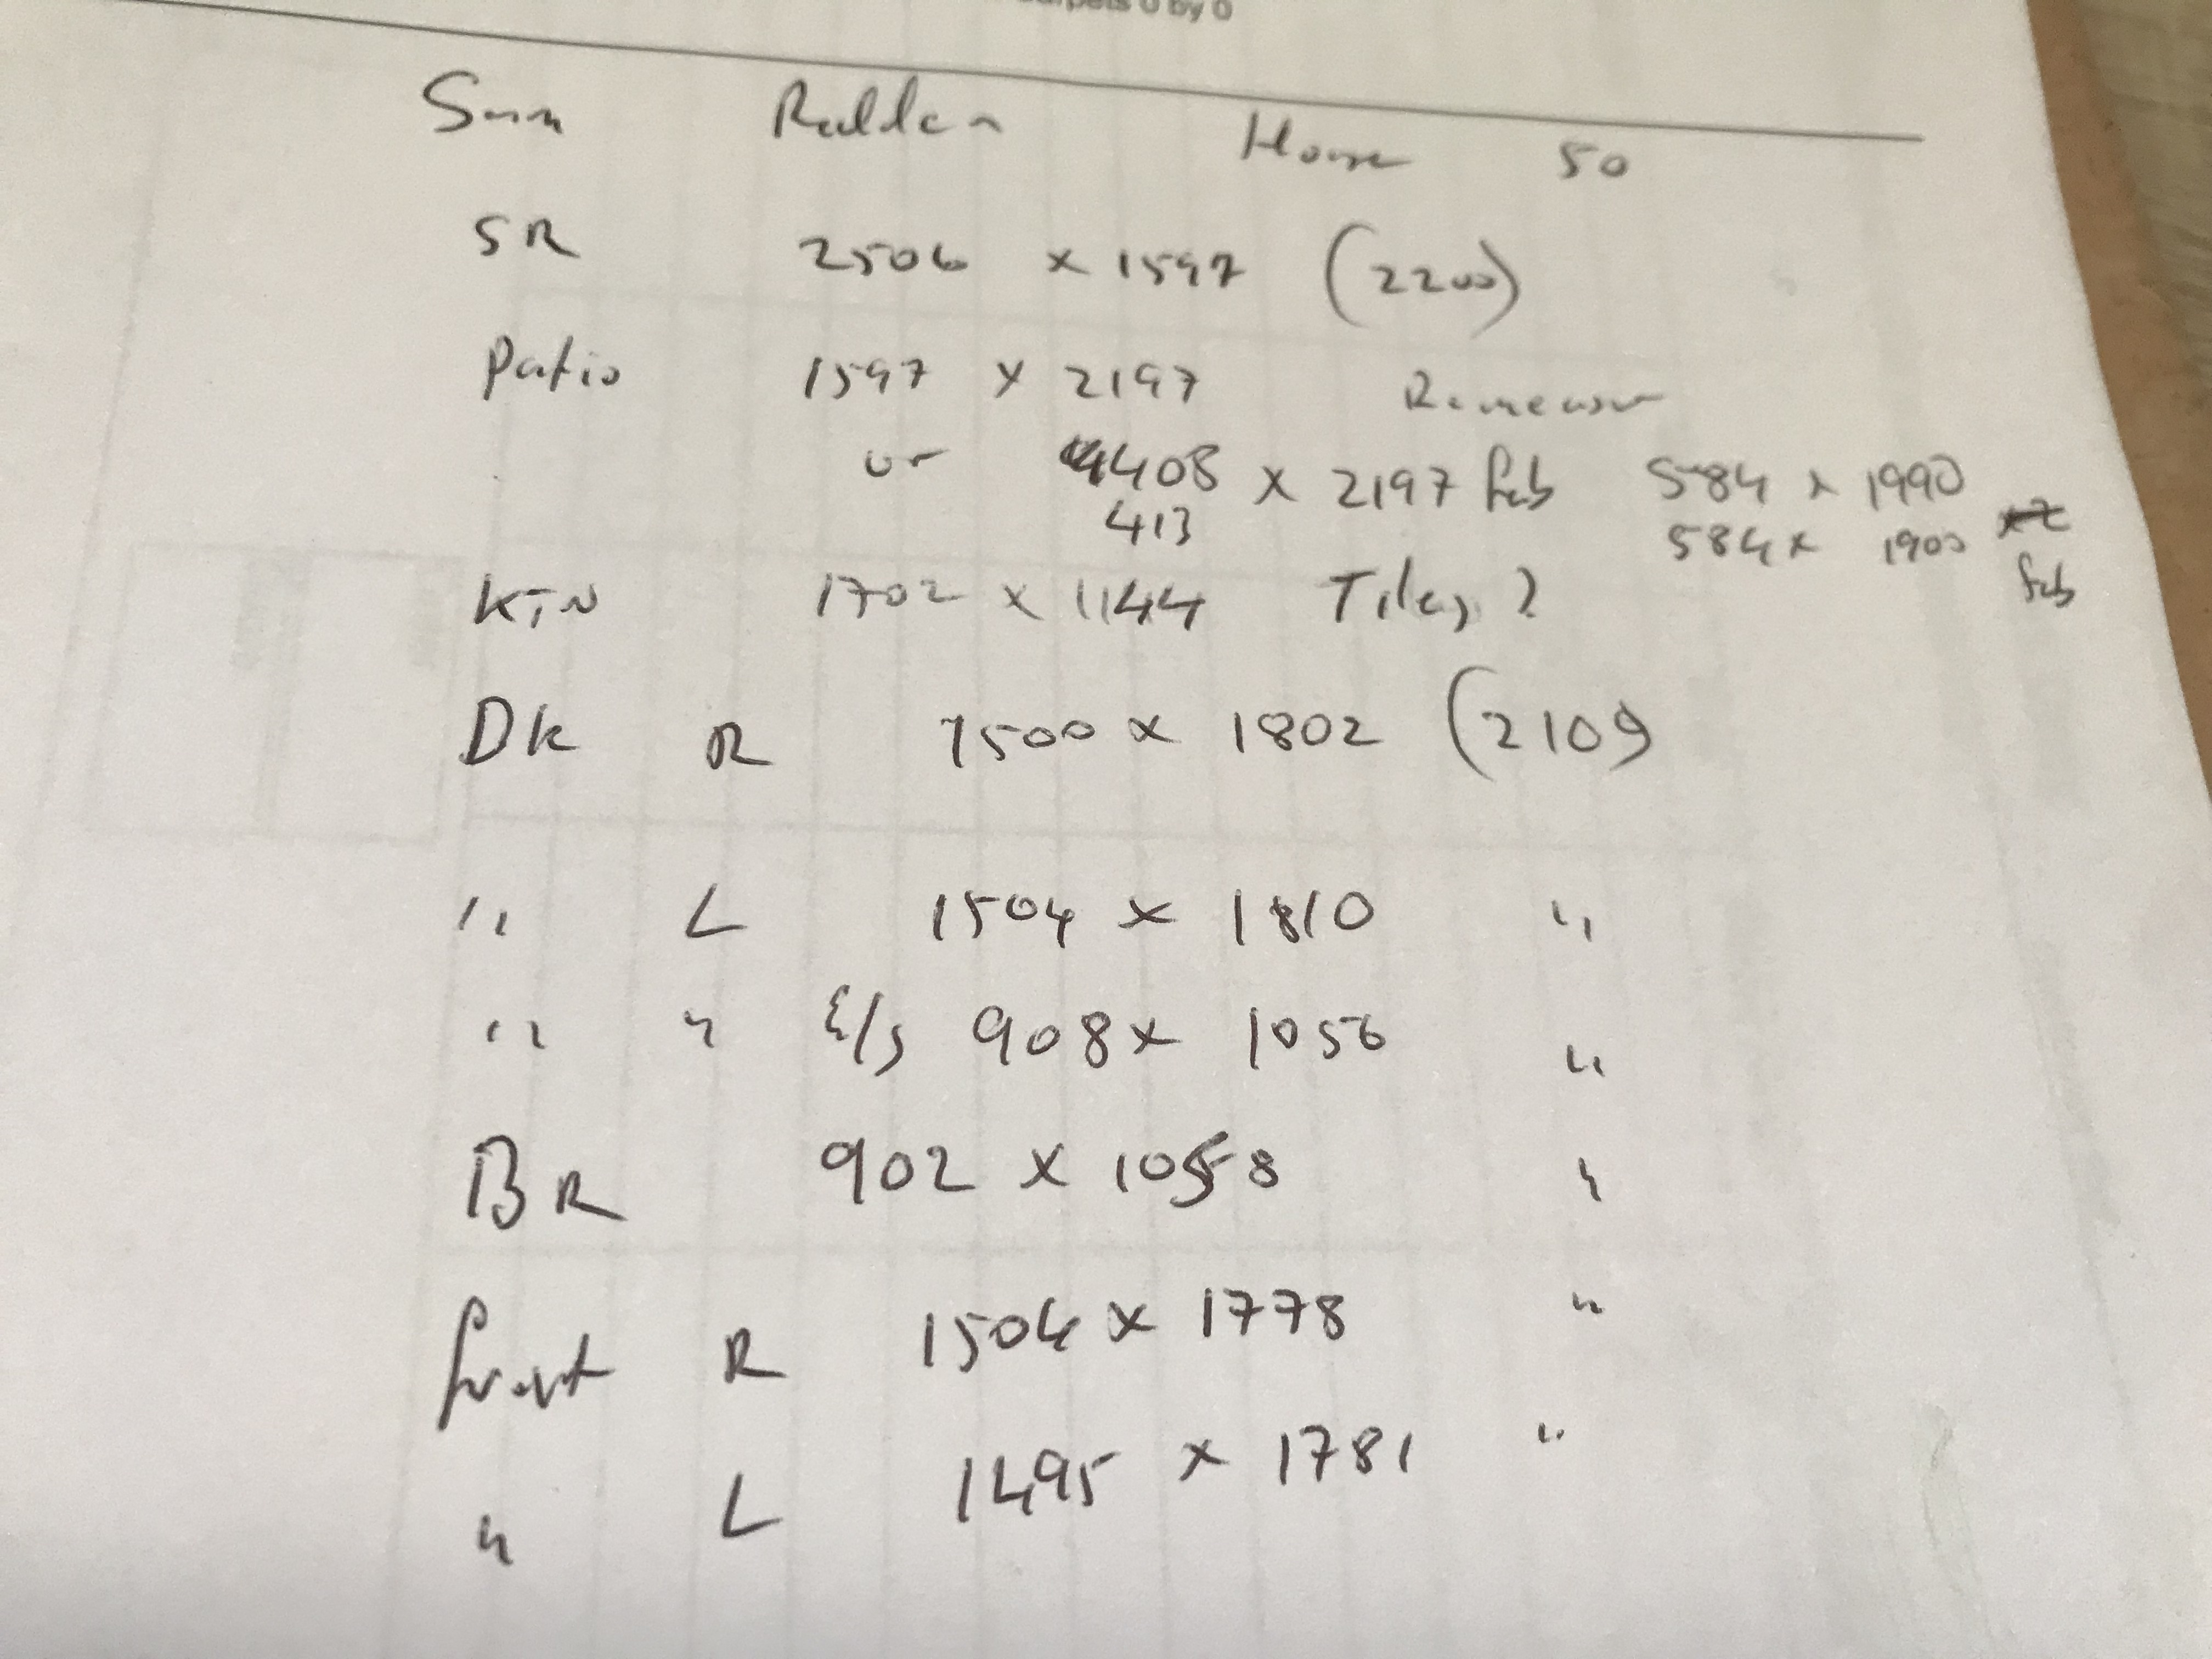 by 0
House 50
SR 2506 x 1597 (2200)
Patio 1597 x 2197 Remeasur
or 408 x 2197 fab 584 x 1990
413 584 x 1900 x2
fab
Kin 1702 x 1144 Tiles ?
Dk R 1500 x 1802 (2109
" L 1504 x 1810 "
" " E/S 908 x 1056 "
BR 902 x 1058 "
front R 1504 x 1778 "
" L 1495 x 1781 "